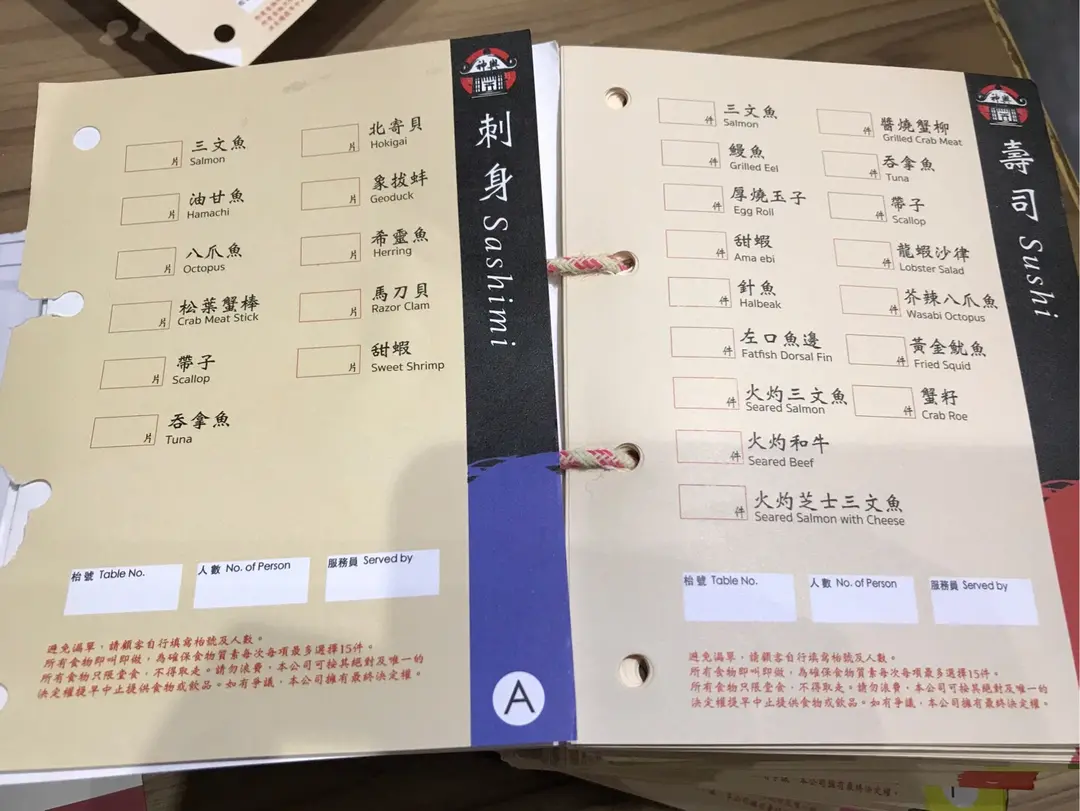 神樂
刺身 Sashimi
片 三文魚
Salmon
片 油甘魚
Hamachi
片 八爪魚
Octopus
片 松葉蟹棒
Crab Meat Stick
片 帶子
Scallop
片 吞拿魚
Tuna
片 北寄貝
Hokigai
片 象拔蚌
Geoduck
片 希靈魚
Herring
片 馬刀貝
Razor Clam
片 甜蝦
Sweet Shrimp
枱號 Table No.
人數 No. of Person
服務員 Served by
避免漏單，請顧客自行填寫枱號及人數。
所有食物即叫即做，為確保食物質素每次每項最多選擇15件。
所有食物只限堂食，不得取走。請勿浪費，本公司可按其絕對及唯一的
決定權提早中止提供食物或飲品。如有爭議，本公司擁有最終決定權。
A
神樂
壽司 Sushi
件 三文魚
Salmon
件 鰻魚
Grilled Eel
件 厚燒玉子
Egg Roll
件 甜蝦
Ama ebi
件 針魚
Halbeak
件 左口魚邊
Fatfish Dorsal Fin
件 火灼三文魚
Seared Salmon
件 火灼和牛
Seared Beef
件 火灼芝士三文魚
Seared Salmon with Cheese
件 醬燒蟹柳
Grilled Crab Meat
件 吞拿魚
Tuna
件 帶子
Scallop
件 龍蝦沙律
Lobster Salad
件 芥辣八爪魚
Wasabi Octopus
件 黃金魷魚
Fried Squid
件 蟹籽
Crab Roe
枱號 Table No.
人數 No. of Person
服務員 Served by
避免漏單，請顧客自行填寫枱號及人數。
所有食物即叫即做，為確保食物質素每次每項最多選擇15件。
所有食物只限堂食，不得取走。請勿浪費，本公司可按其絕對及唯一的
決定權提早中止提供食物或飲品。如有爭議，本公司擁有最終決定權。
本公司擁有最終決定權。